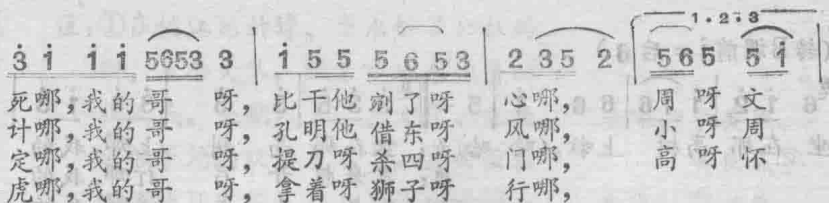 1.2.3
3 1 1 1 5653 3 | 1 5 5 5 6 5 3 | 2 35 2 | 5 6 5 5 1
死哪，我的哥 呀，比干他剜了呀 心哪， 周 呀 文
计哪，我的哥 呀，孔明他借东呀 风哪， 小 呀 周
定哪，我的哥 呀，提刀呀杀四呀 门哪， 高 呀 怀
虎哪，我的哥 呀，拿着呀狮子呀 行哪，